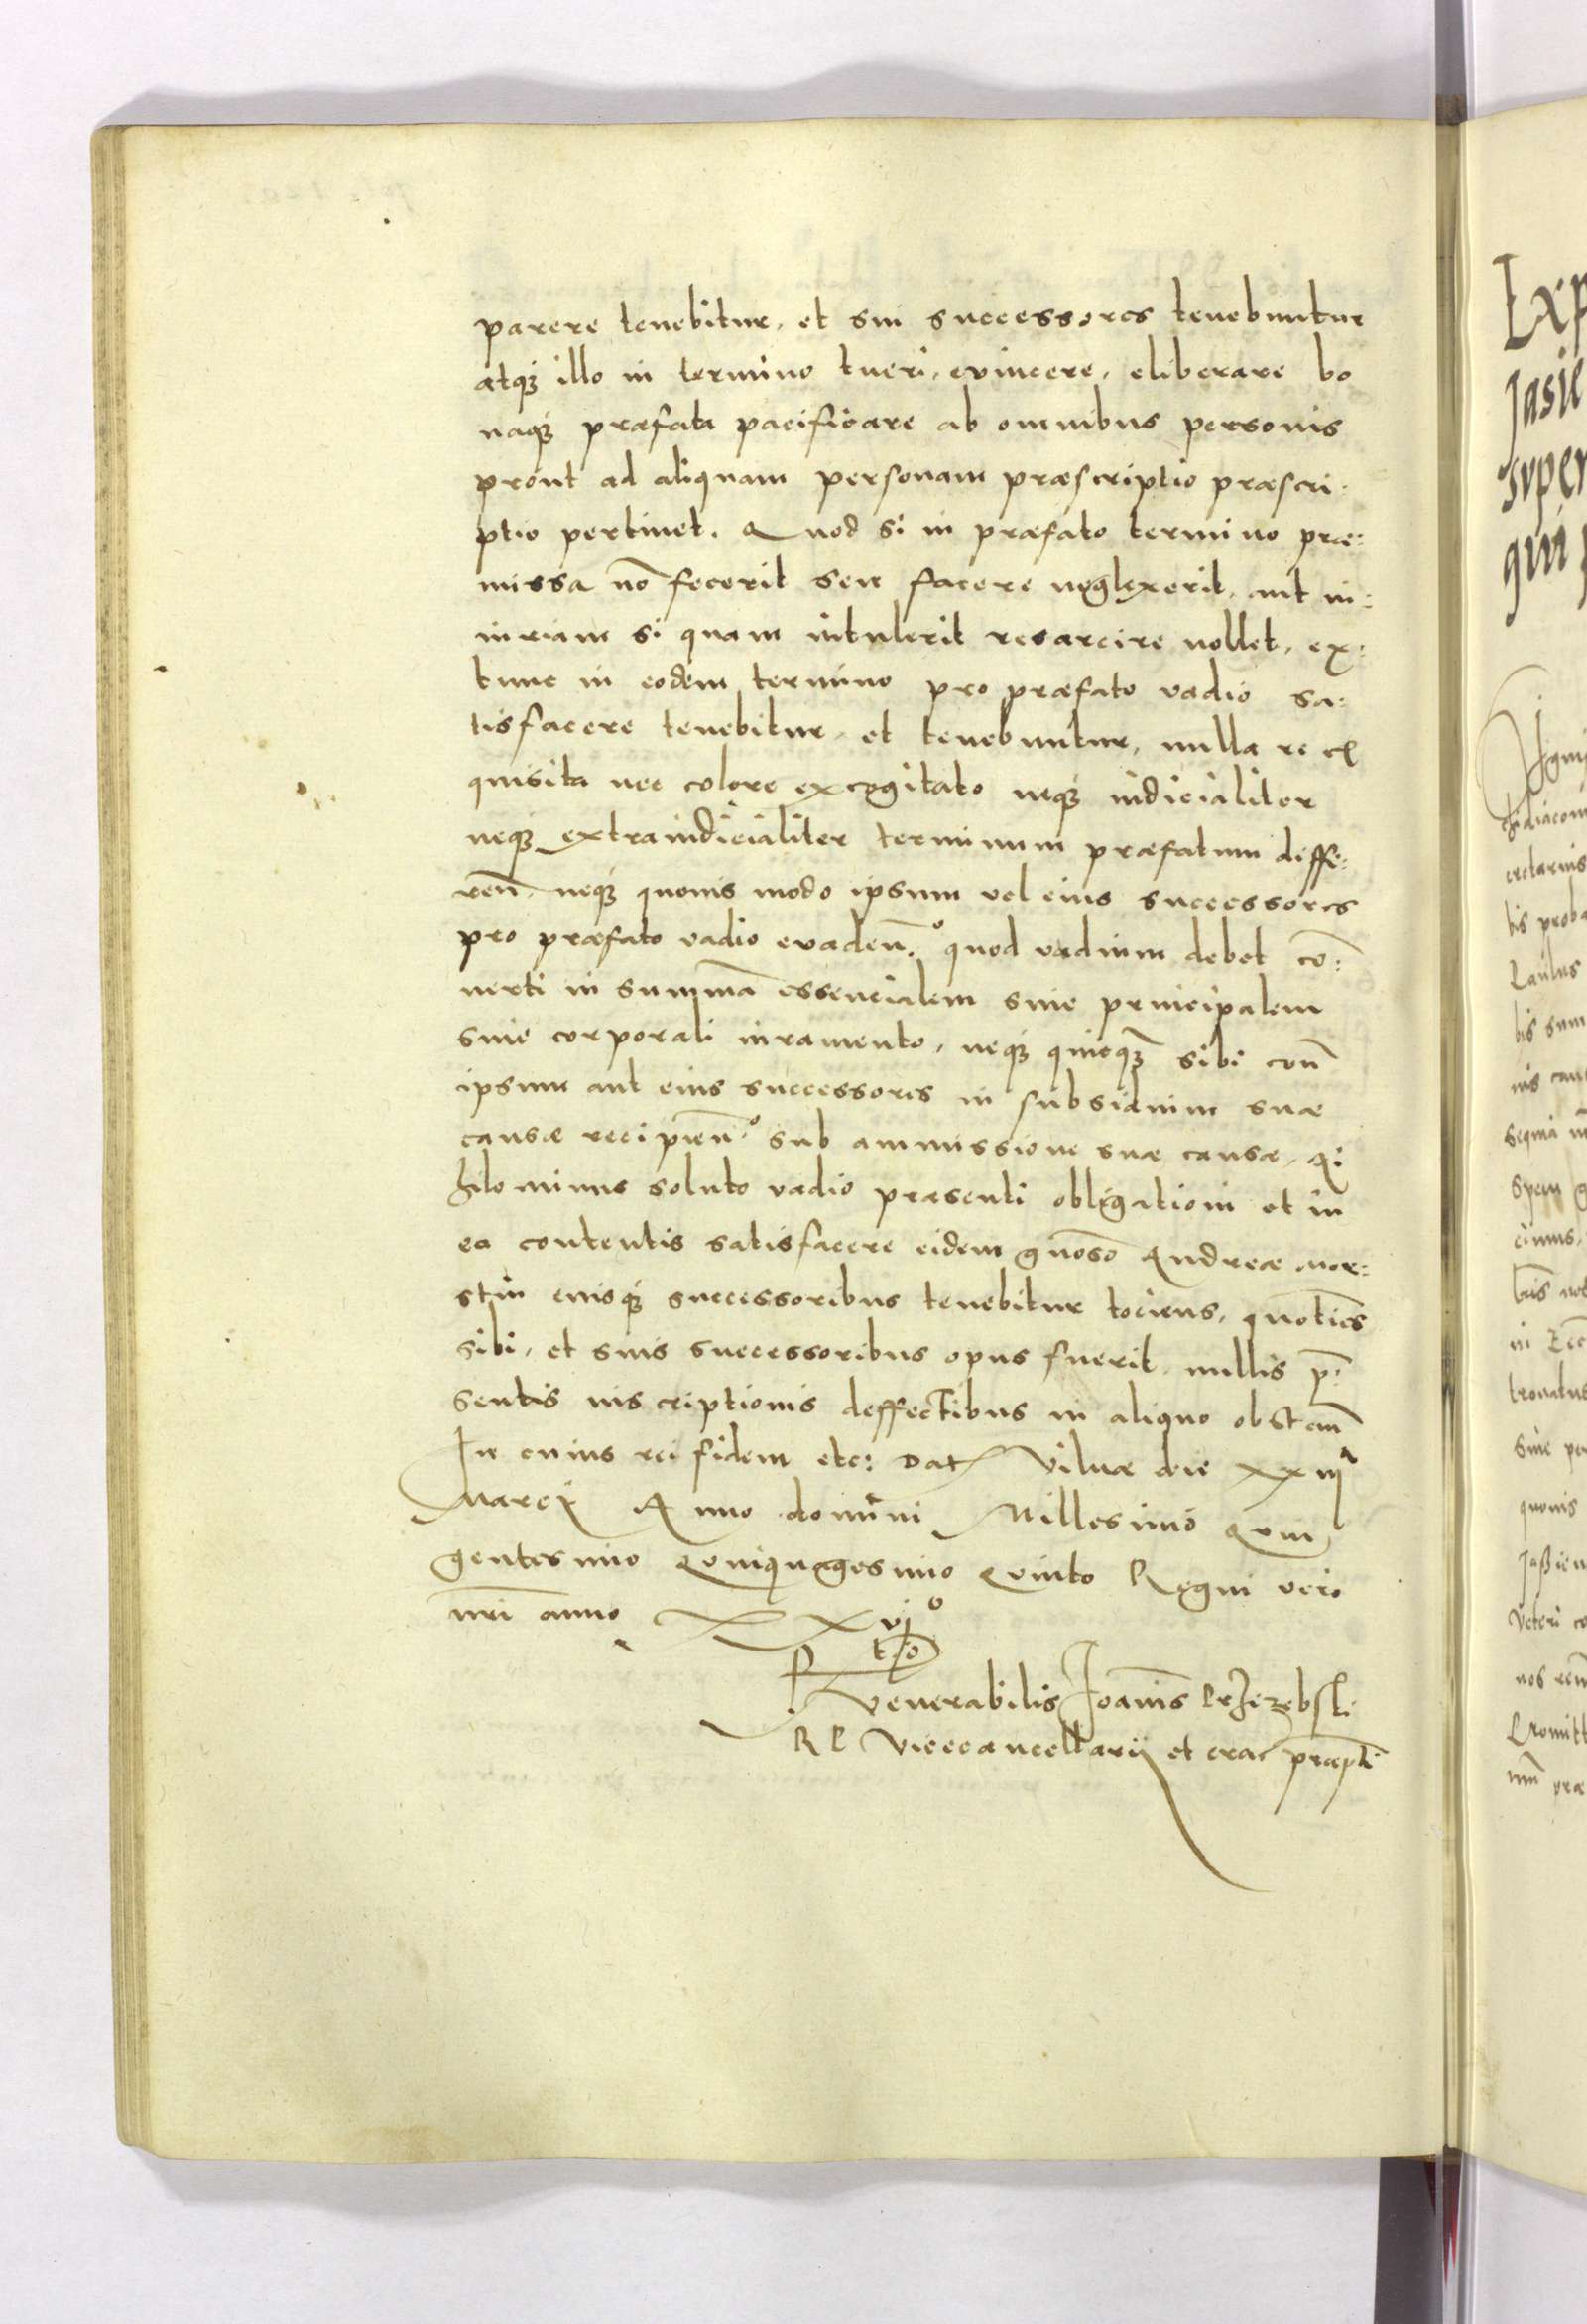 parere tenebitur, et sui successores tenebuntur
atq₃ illo in termino tueri, evincere, eliberare bo
naq₃ præfata pacificare ab omnibus personis
prout ad aliquam personam præscriptio præscri:
ptio pertinet. Quod si in præfato termino præ:
missa nō fecerit seu facere neglexerit, aut in:
iuriam si quam intulerit resarcire nollet, ex:
tunc in eodem termino pro præfato vadio sa:
tisfacere tenebitur, et tenebuntur, nulla re ex
quisita nec colore excogitato neq₃ iudicialiter
neq₃ extraiudicialiter terminum præfatum diffe:
ren̄. neq₃ quovis modo ipsum vel eius successores
pro præfato vadio evaden̄. quod vadium debet cō:
verti in summā essencialem sive principalem
sine corporali iuramento, neq₃ quicq₃ sibi con̄
ipsum aut eius successores in subsidium suæ
causæ recipien̄. sub ammissione suæ causæ, Ni
hilominus soluto vadio præsenti obligationi et in
ea contentis satisfacere eidem gnōso Andreæ Mor:
stin eiusq₃ successoribus tenebitur tociens, quoties
sibi, et suis successoribus opus fuerit, nullis p̄:
sentis inscriptionis deffectibus in aliquo obstan̄
In cuius rei fidem etc: Dat Vilnæ die xxiij
Marcij Anno domini Millesimo Quin
gentesimo Quinquagesimo Quinto Regni vero
nrī anno XXvj°
Rtio
Venerabilis Joannis Przerebsk:
R P Vicecancellarij et crac præpti